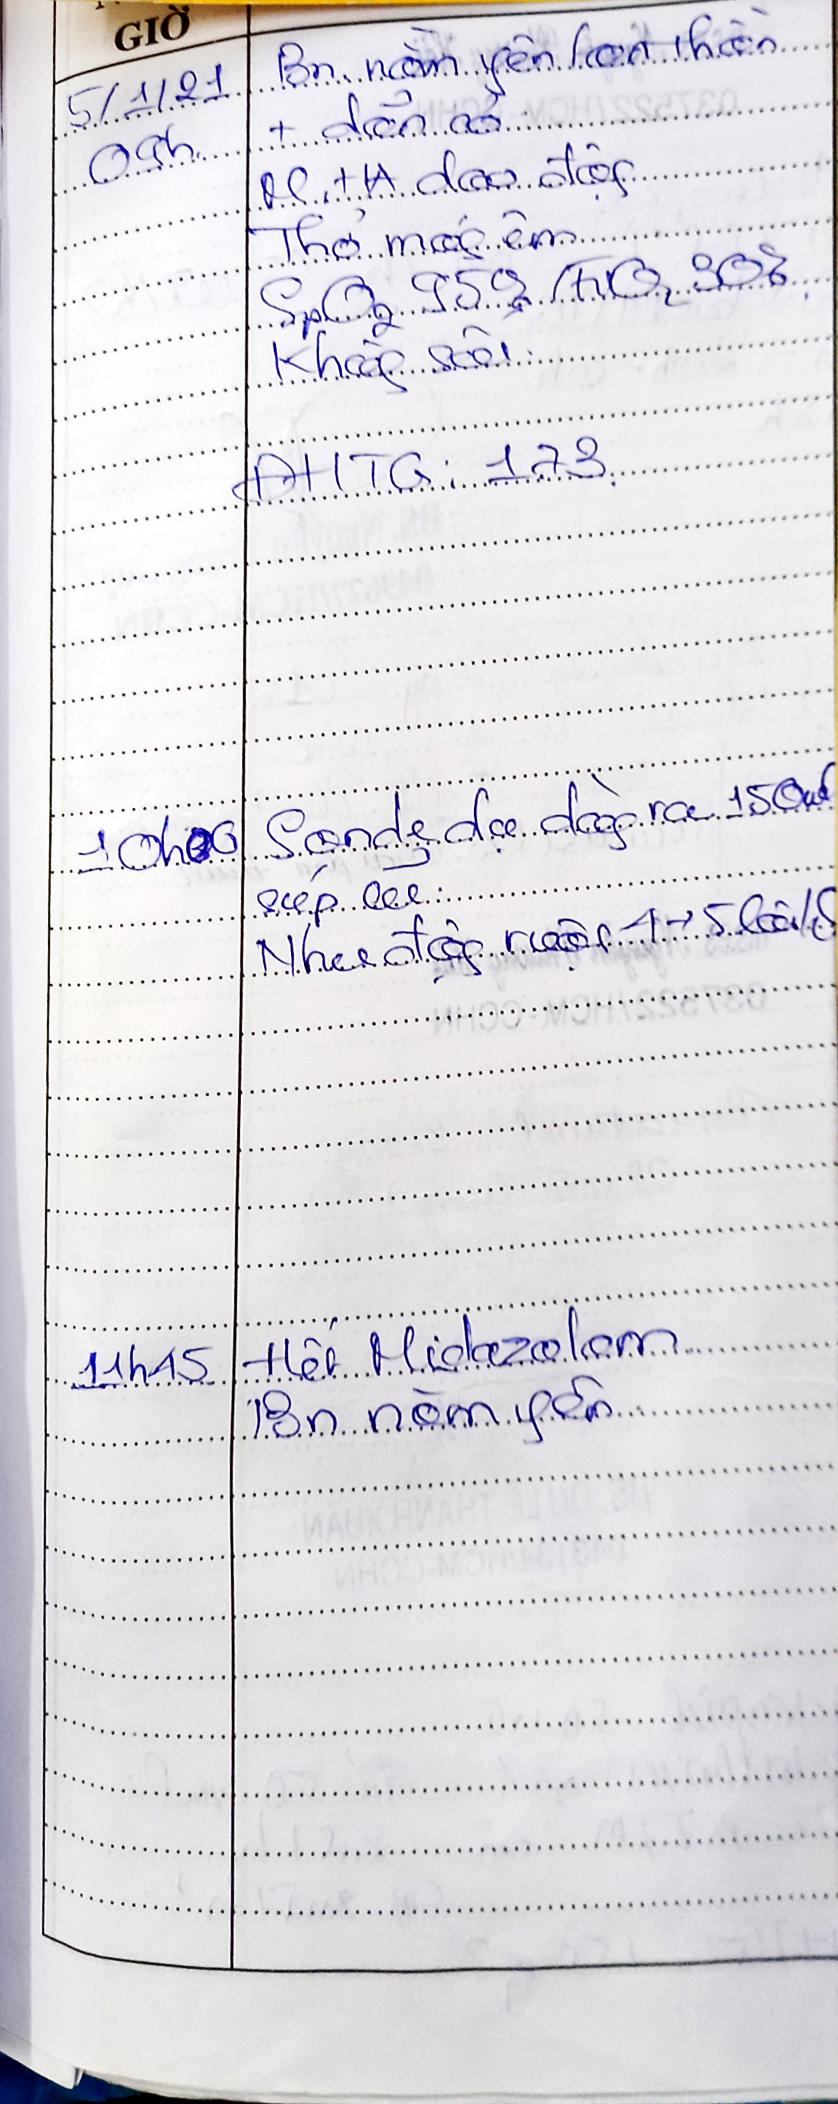 GIỜ
5/1/21 Bn nằm yên hơn
08h + dẫn
M, HA dao động
Thở máy êm
SpO2 95% /FiO2 30%
Không sốt
ĐHTG: 173
10h00 Sonde dạ dày ra 150ml
Nhu động ruột 4→5 lần/
11h45 Hết Midazolam
Bn nằm yên